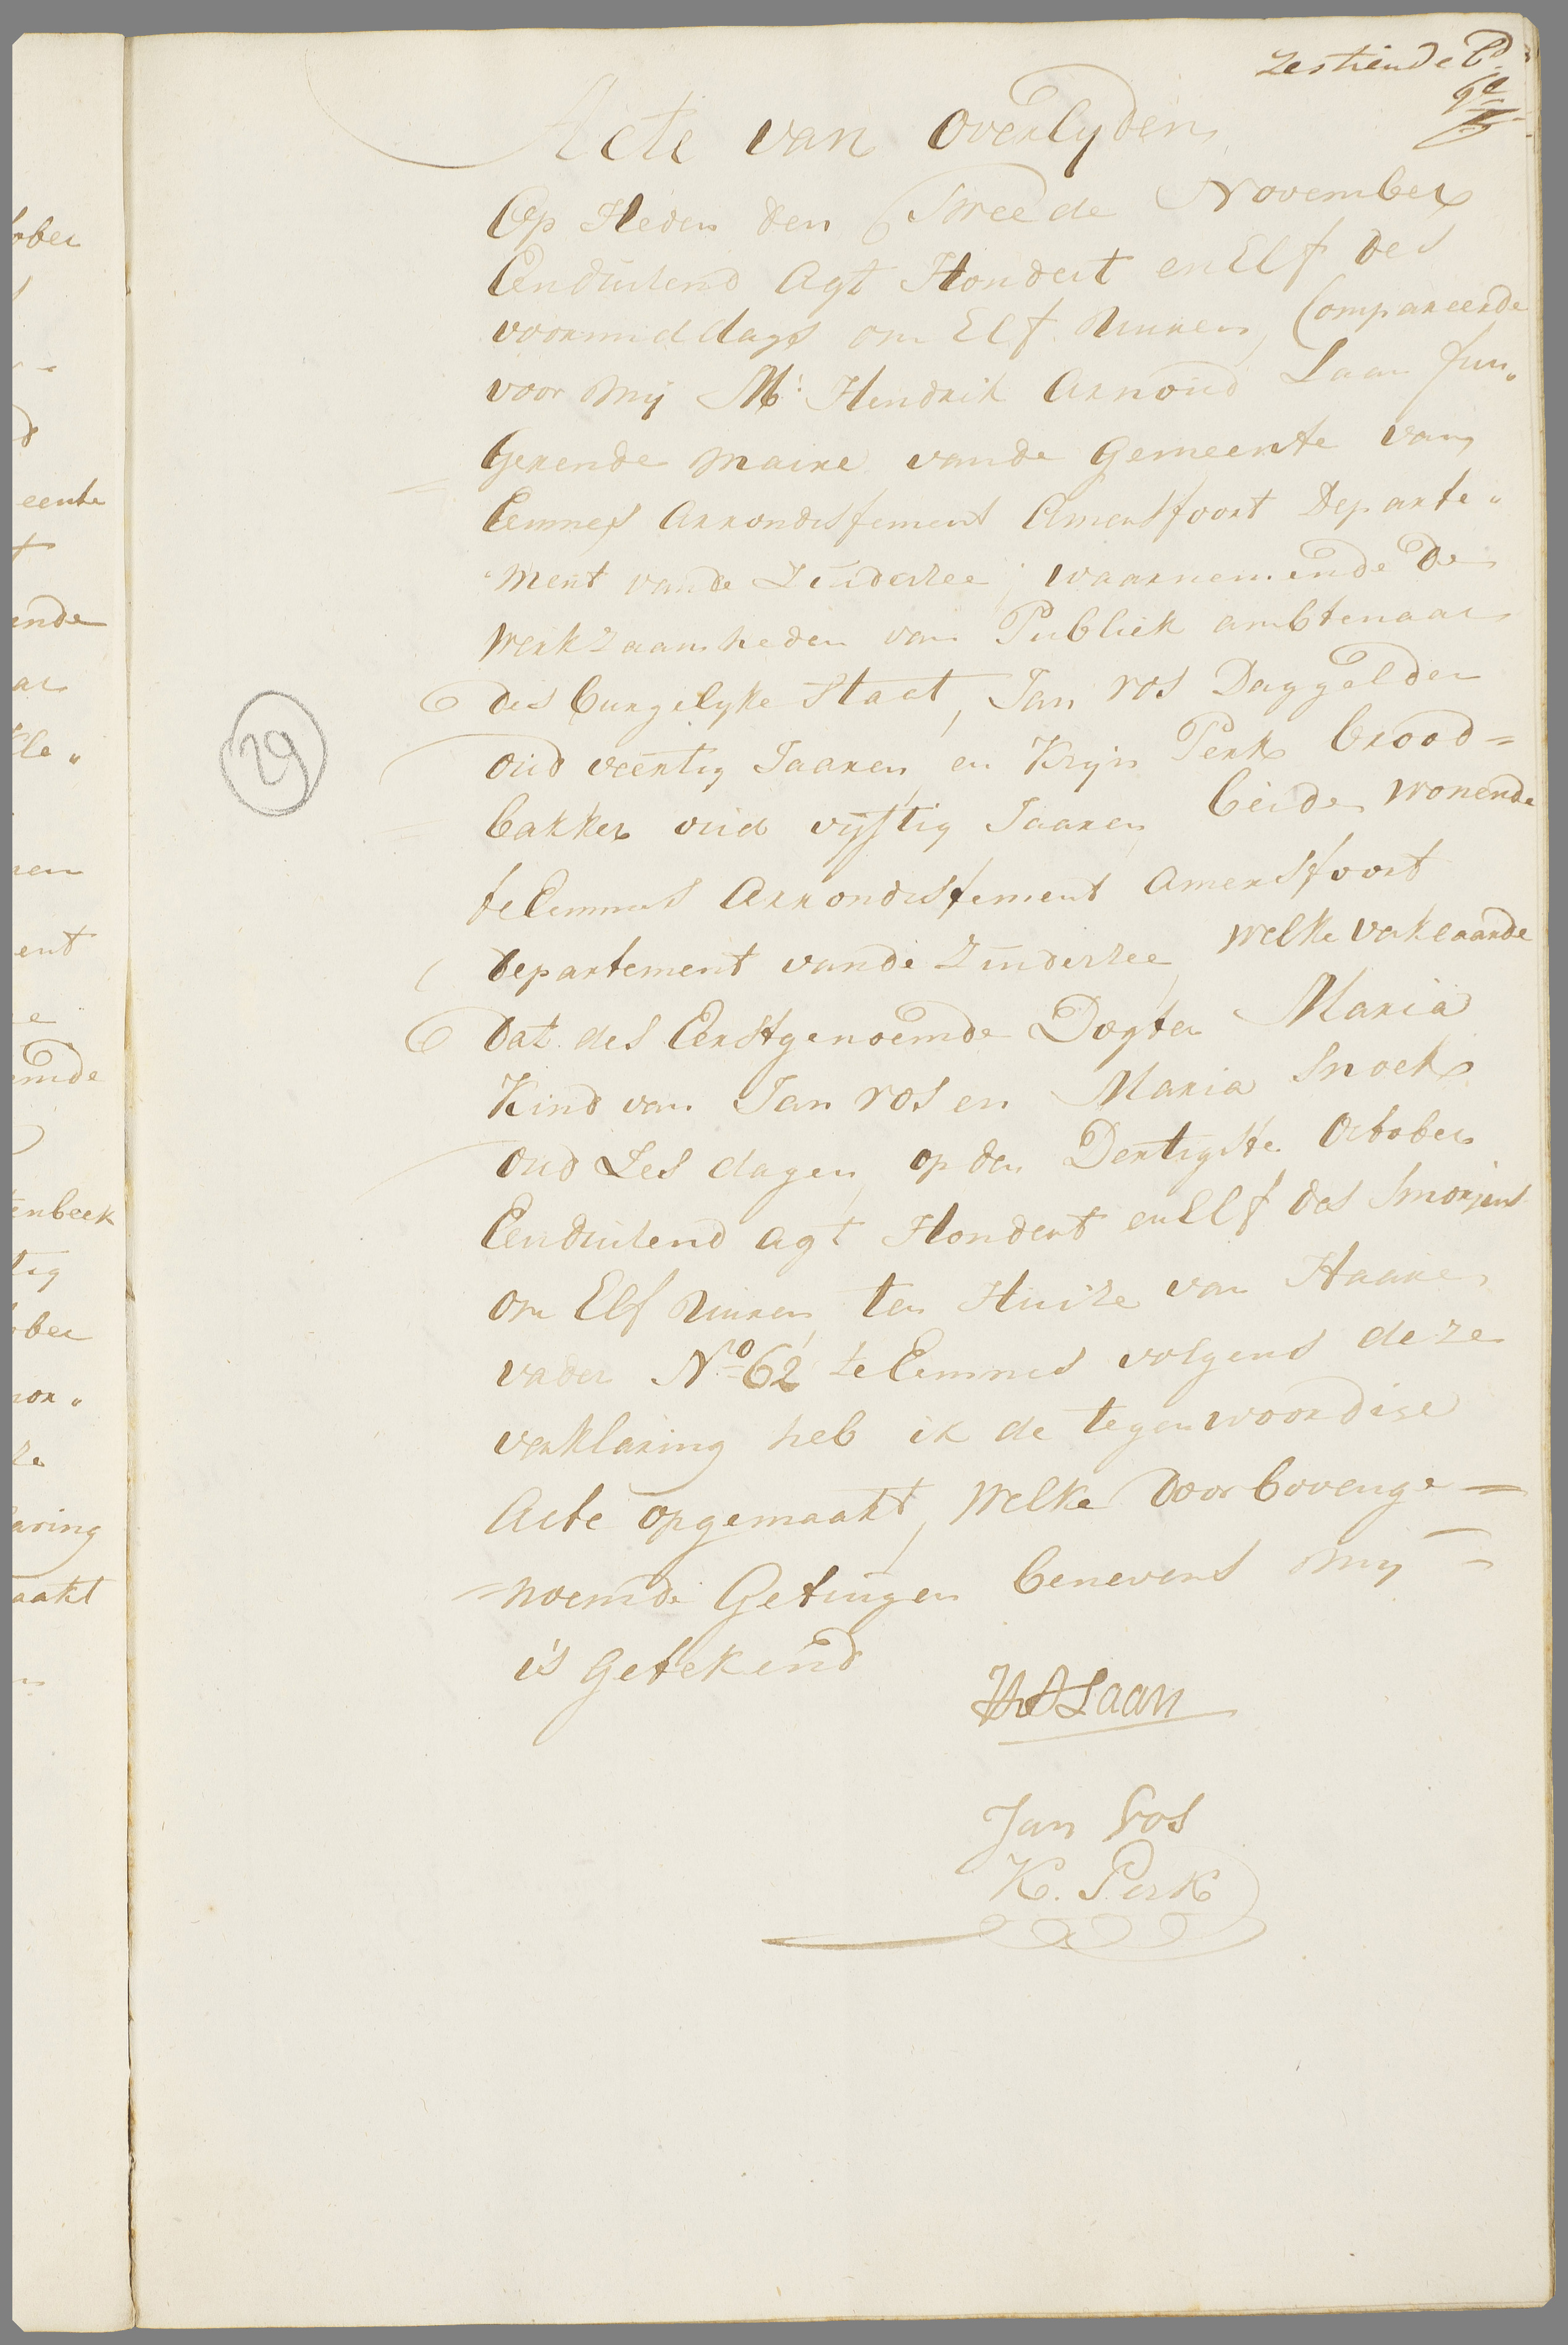 Zestiende
Acte van overlyden
Op Heden den Tweede November
Eenduisend Agt Hondert en Elf des
voormiddags om Elf Uuren, Compareerde
voor mij Mr: Hendrik Arnoud Laan fun„
gerende maire vande Gemeente van
Eemnes Arrondissement Amersfoort Departe„
„ment vande Zuiderzee, waarnemende de
werkzaamheden van Publiek ambtenaar
des burgelyke Staat, Jan ros Daggelder
oud veertig Jaaren, en Krijn Perk brood=
bakker oud vijftig Jaaren, beide wonende
te Eemnes Arrondissement Amersfoort
departement vande Zuiderzee, welke verklaarde
dat des Eerstgenoemde Dogter Maria
Kind van Jan ros en Maria Snoek
oud Zes dagen, op den Dertigste October
Eenduisend agt Hondert en Elf des Smorjens
om Elf Uuren, ten Huize van Haare
vader No 62 te Eemnes volgens deze
verklaring heb ik de tegenwoordige
Acte opgemaakt, welke door bovenge=
=noemde Getuigen benevens mij
is getekend
29
HALaan
Jan Ros
K. Perk
ober
eente
ende
ar
kle„
ren
ent
e
emde
enbeek
tig
ober
mor„
ze
laring
aakt